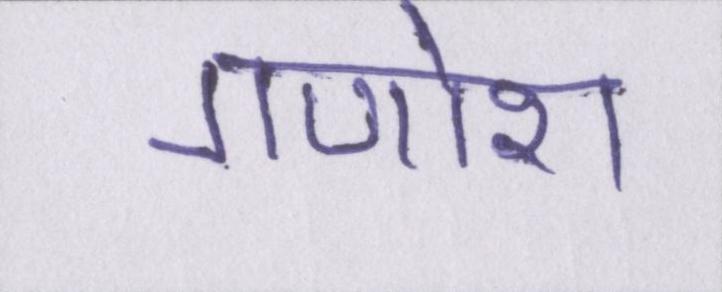 गणोश